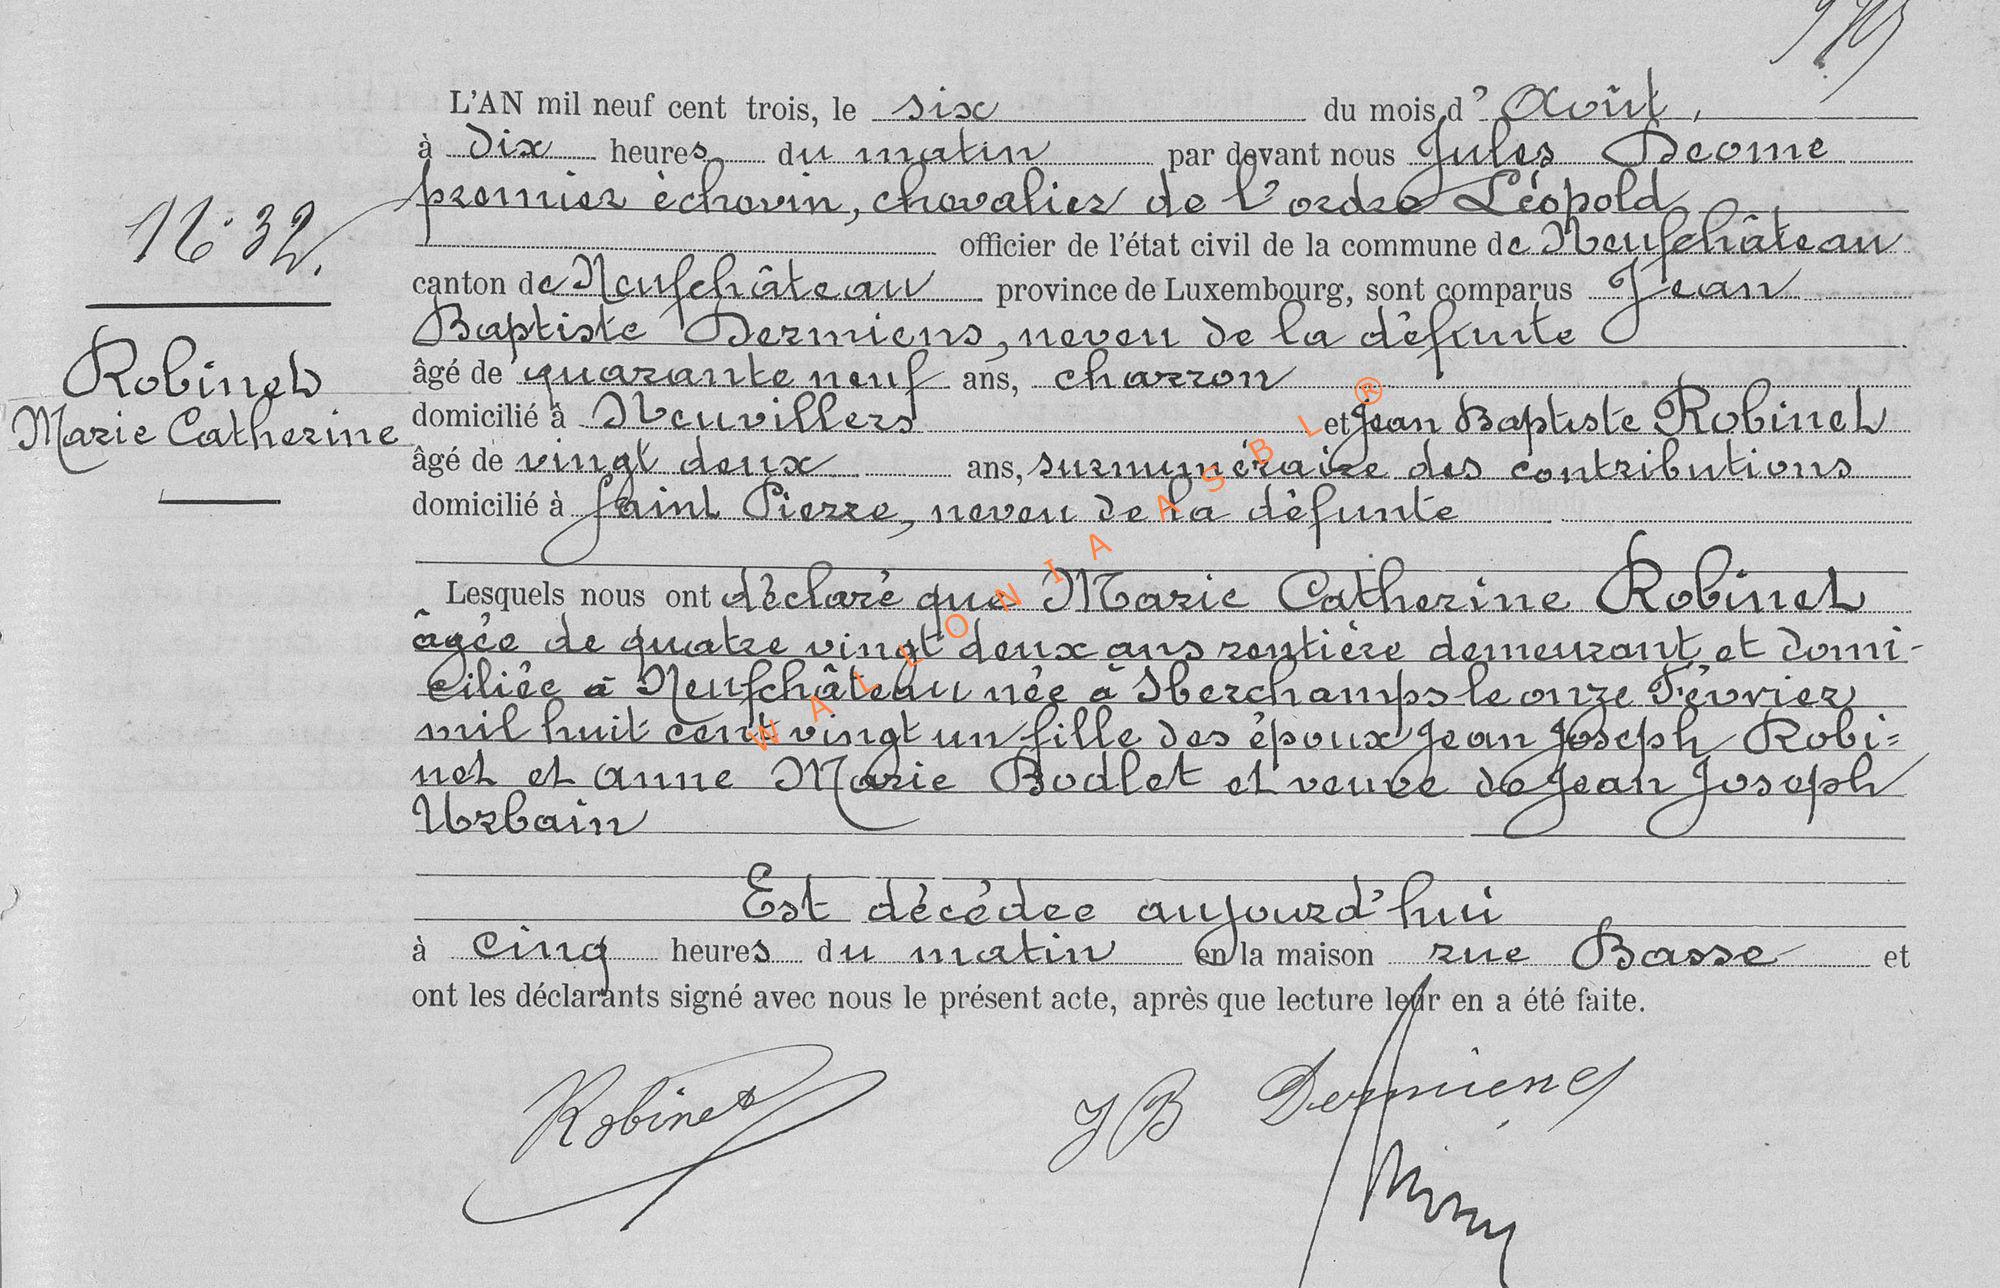 L'AN mil neuf cent trois, le six du mois d'Août,
à dix heures du matin par devant nous Jules Deome
premier échevin, chevalier de l'ordre Léopold
officier de l'état civil de la commune de Neufchâteau
N° 32.
canton de Neufchâteau province de Luxembourg, sont comparus Jean
Baptiste Dermiens, neveu de la défunte
âgé de quarante neuf ans, charron
domicilié à Neuvillers et Jean Baptiste Robinet
âgé de vingt deux ans, surnuméraire des contributions
domicilié à Saint Pierre, neveu de la défunte
Robinet
Marie Catherine
Lesquels nous ont déclaré que Marie Catherine Robinet
âgée de quatre vingt deux ans rentière demeurant et domi-
ciliée à Neufchâteau née à Sberchamps le onze Février
mil huit cent vingt un fille des époux Jean Joseph Robi=
net et Anne Marie Bodlet et veuve de Jean Joseph
Urbain
Est décédée aujourd'hui
à cinq heures du matin en la maison rue Basse et
ont les déclarants signé avec nous le présent acte, après que lecture leur en a été faite.
Robinet
JB Dermiens
WALLONIA ASBL ®